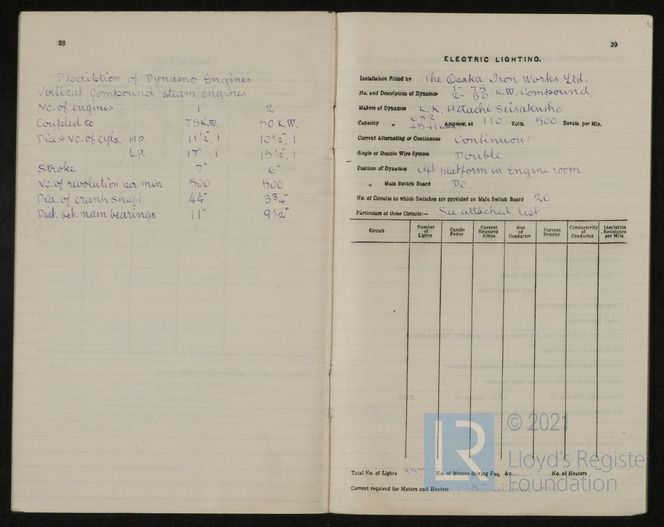 38
Description of Dynamo Engines
Vertical Compound steam engines
No. of engines 1 2
Coupled to 75 K.W. 50 K.W.
Dia & No. of Cyls. H.P. 11½", 1 10½", 1
L.P. 17" 1 15½", 1
Stroke 7" 6"
No. of revolution per min 500 500
Dia. of crank shaft 4¼" 3¾"
Dist. bet. main bearings 11" 9½"
39
ELECTRIC LIGHTING.
Installation Fitted by The Osaka Iron Works Ltd.
No. and Description of Dynamos 1- 75 2- 50 K.W. Compound
Makers of Dynamos K. K. Hitachi Seisakusho
Capacity " Amperes, at 110 Volts, 500 Revols. per Min.
Current Alternating or Continuous Continuous
Single or Double Wire System Double
Position of Dynamos Platform in Engine room
" Main Switch Board Do.
No. of Circuits to which Switches are provided on Main Switch Board 20
Particulars of these Circuits:— See attached list
Circuit Number of Lights Candle Power Current Required Amps Size of Conductor Current Density Conductivity of Conductor Insulation Resistance per Mile
Total No. of Lights No. of Motors driving Fans, &c. No. of Heaters
Current required for Motors and Heaters
LR
© 2021
Lloyd's Register
Foundation